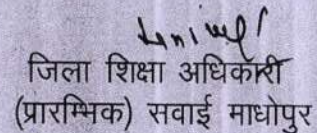 जिला शिक्षा अधिकारी
(प्रारम्भिक) सवाई माधोपुर